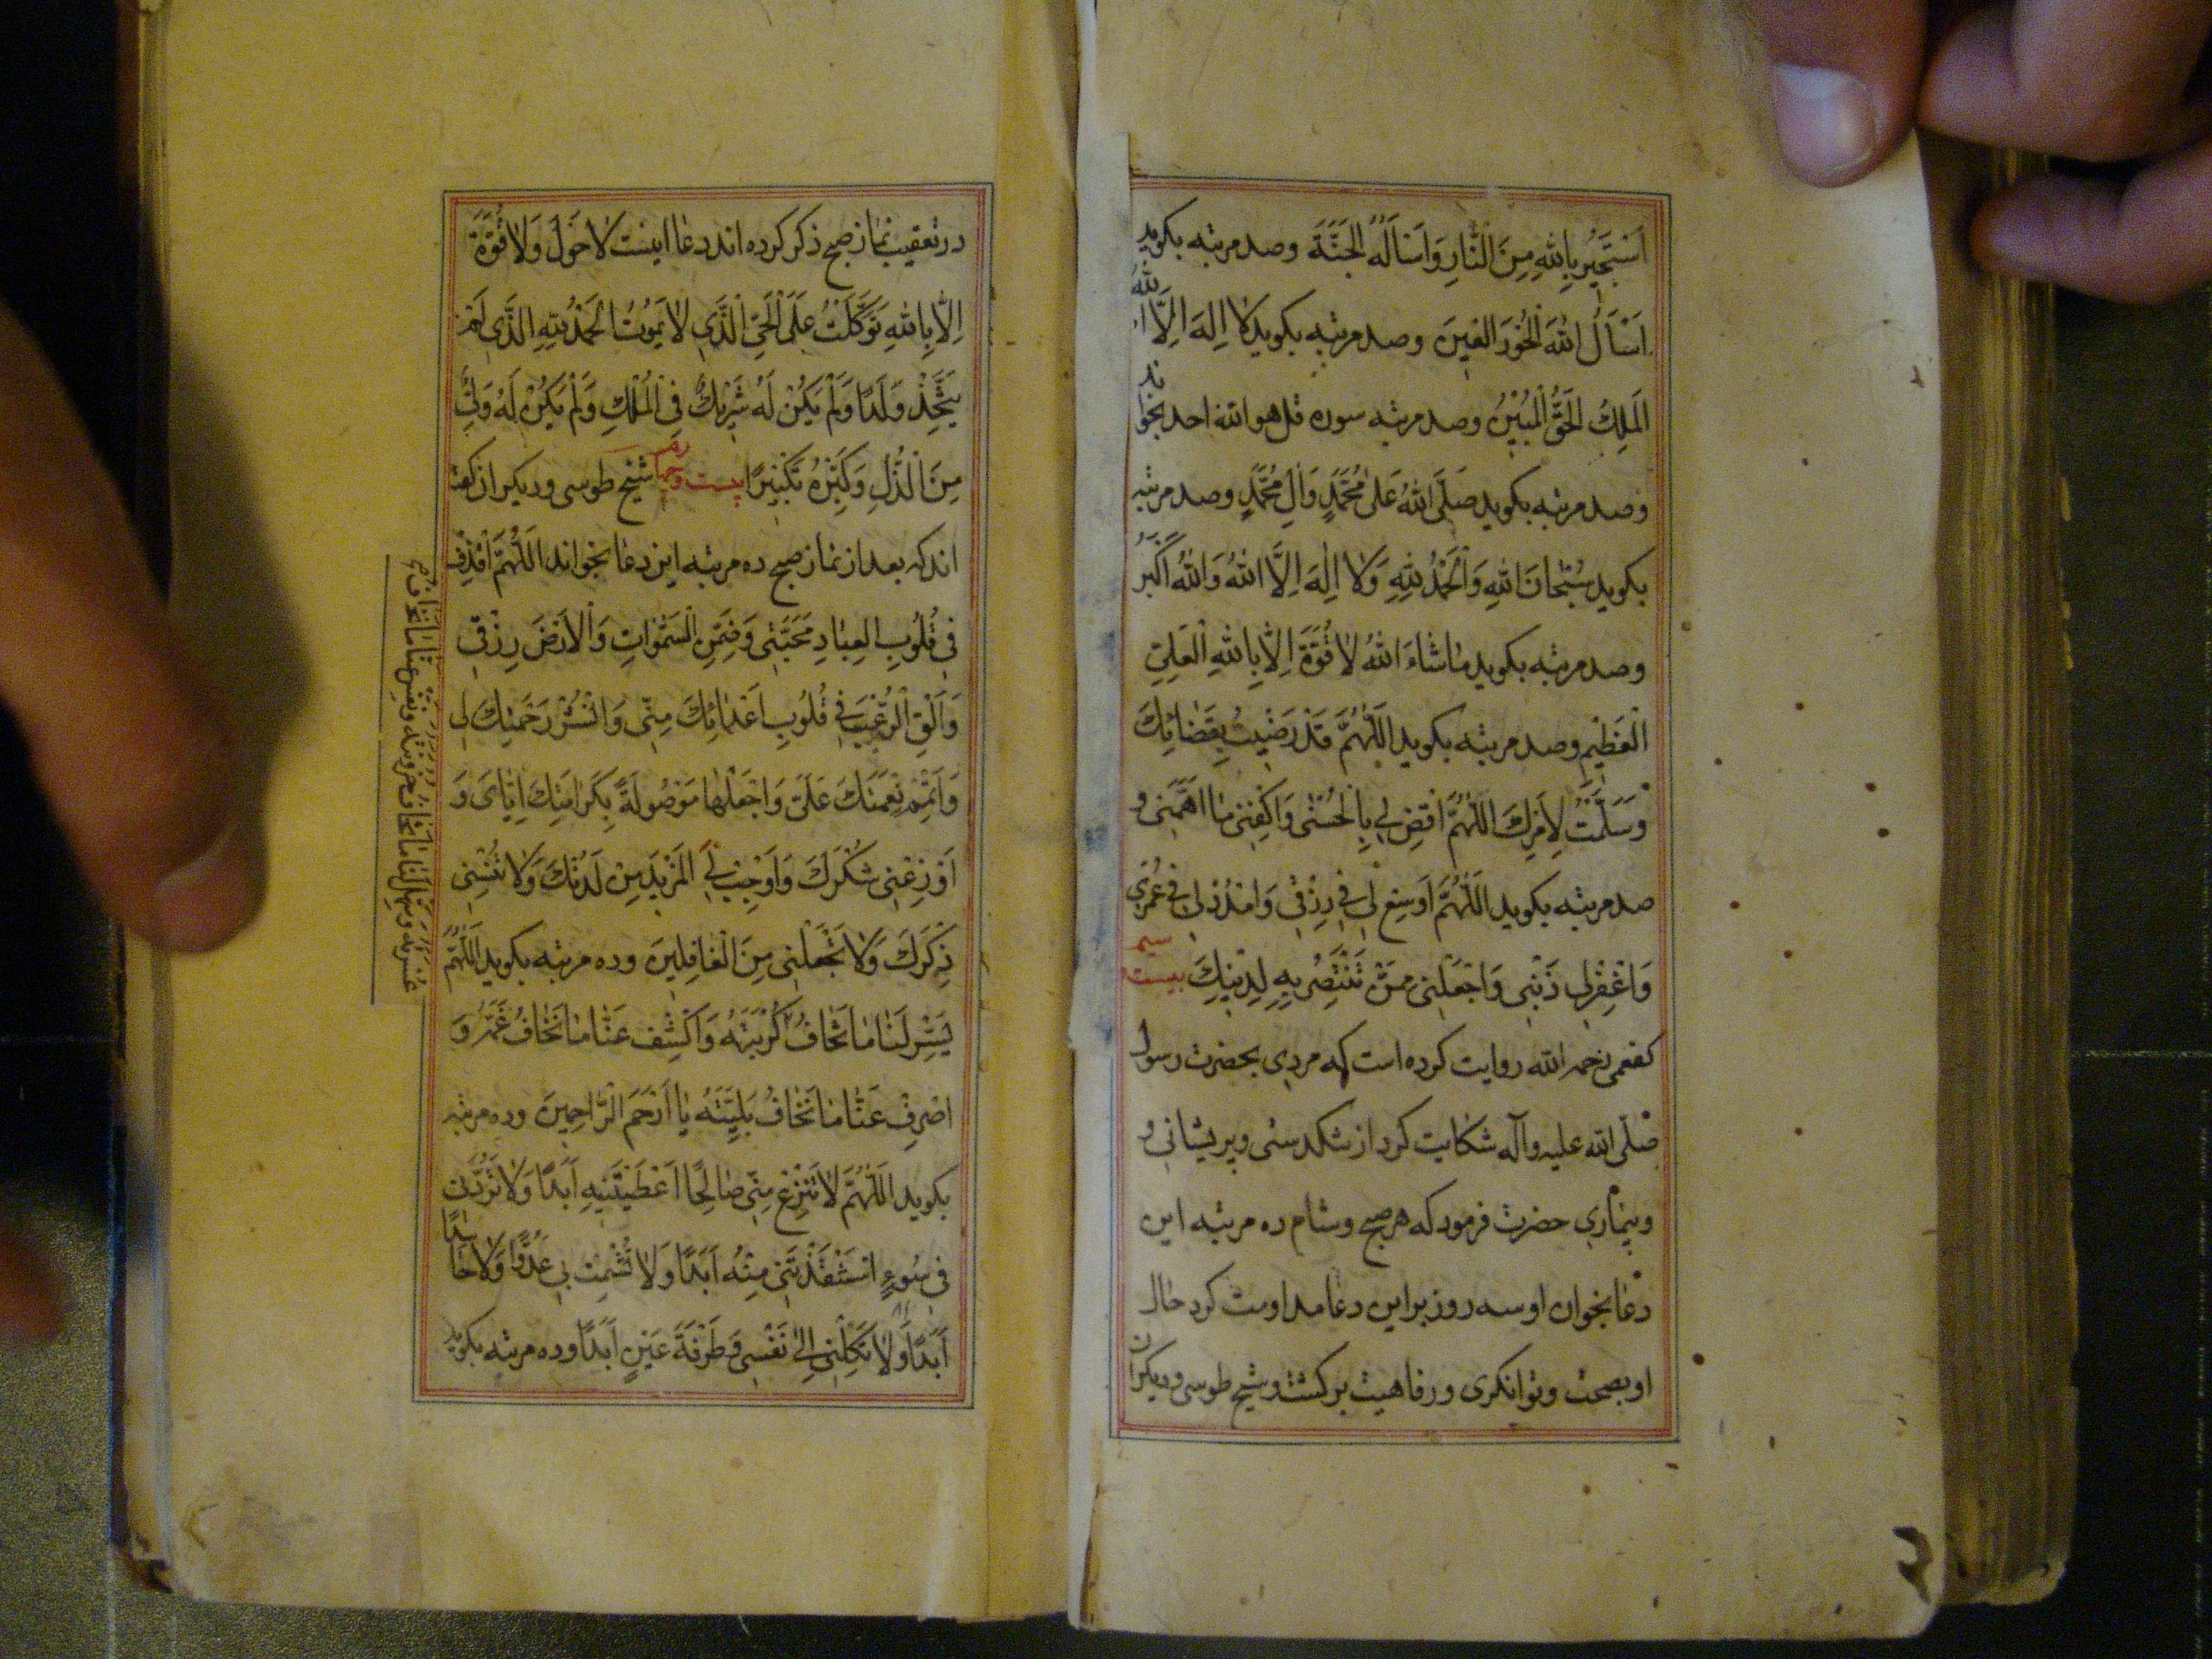 اَسْتَجيرُ بِاللهِ مِنَ النَّارِ وَاَسْاَلُهُ الْجَنَّةَ وصد مرتبه بكويد
اَسْاَلُ اللهَ الْحُورَ الْعينَ وصد مرتبه بكويد لا اِلهَ اِلَّا اللهُ
الْمَلِكُ الْحَقُّ الْمُبينُ وصد مرتبه سوره قل هو الله احد بخواند
وصد مرتبه بكويد صَلَّى اللهُ عَلى مُحَمَّدٍ وَآلِ مُحَمَّدٍ وصد مرتبه
بكويد سُبْحانَ اللهِ وَالْحَمْدُ لِلّهِ وَلا اِلهَ اِلَّا اللهُ وَاللهُ اَكْبَرُ
وصد مرتبه بكويد ماشاءَ اللهُ لا قُوَّةَ اِلَّا بِاللهِ الْعَلِيِّ
الْعَظيمِ وصد مرتبه بكويد اَللّهُمَّ قَدْ رَضيتُ بِقَضائِكَ
وَسَلَّمْتُ لِاَمْرِكَ اَللّهُمَّ اقْضِ لى بِالْحُسْنى وَاكْفِنى ما اَهَمَّنى و
صد مرتبه بكويد اَللّهُمَّ اَوْسِعْ لى فى رِزْقى وَامْدُدْ لى فى عُمْرى
وَاغْفِرْ لى ذَنْبى وَاجْعَلْنى مِمَّنْ تَنْتَصِرُ بِهِ لِدينِكَ بيست وسيم
كفعمى رحمه الله روايت كرده است كه مردى بحضرت رسول
صلّى الله عليه وآله شكايت كرد از تنكدستى وپريشانى و
وبيمارى حضرت فرمود كه هر صبح وشام ده مرتبه اين
دعا بخوان او سه روز براين دعا مداومت كرد حال
او بصحت وتوانكرى ورفاهيت بركشت وشيخ طوسى وديكران
در تعقيب نماز صبح ذكر كرده اند دعا اينست لا حَوْلَ وَلا قُوَّةَ
اِلَّا بِاللهِ تَوَكَّلْتُ عَلَى الْحَىِّ الَّذى لا يَمُوتُ الْحَمْدُ لِلّهِ الَّذى لَمْ
يَتَّخِذْ وَلَدًا وَلَمْ يَكُنْ لَهُ شَريكٌ فِى الْمُلْكِ وَلَمْ يَكُنْ لَهُ وَلِىٌّ
مِنَ الذُّلِّ وَكَبِّرْهُ تَكْبيرًا بيست وچهارم شيخ طوسى وديكران كفته
اند كه بعد از نماز صبح ده مرتبه اين دعا بخواند اَللّهُمَّ اقْذِفْ
فى قُلُوبِ الْعِبادِ مَحَبَّتى وَضَمِّنِ السَّمواتِ وَالْاَرْضَ رِزْقى
وَاَلْقِ الرُّعْبَ فى قُلُوبِ اَعْدائِكَ مِنّى وَانْشُرْ رَحْمَتَكَ لى
وَاَتْمِمْ نِعْمَتَكَ عَلَىَّ وَاجْعَلْها مَوْصُولَةً بِكَرامَتِكَ اِيّاىَ وَ
اَوْزِعْنى شُكْرَكَ وَاَوْجِبْ لِىَ الْمَزيدَ مِنْ لَدُنْكَ وَلا تُنْسِنى
ذِكْرَكَ وَلا تَجْعَلْنى مِنَ الْغافِلينَ وده مرتبه بكويد اَللّهُمَّ
يَسِّرْ لَنا ما نَخافُ كُرْبَتَهُ وَاكْشِفْ عَنّا ما نَخافُ غَمَّهُ وَ
اصْرِفْ عَنّا ما نَخافُ بَلِيَّتَهُ يا اَرْحَمَ الرّاحِمينَ وده مرتبه
بكويد اَللّهُمَّ لا تَنْزِعْ مِنّى صالِحًا اَعْطَيْتَنيهِ اَبَدًا وَلا تَرُدَّنى
فى سُوءٍ اسْتَنْقَذْتَنى مِنْهُ اَبَدًا وَلا تُشْمِتْ بى عَدُوًّا وَلا حاسِدًا
اَبَدًا وَلا تَكِلْنى اِلى نَفْسى طَرْفَةَ عَيْنٍ اَبَدًا وده مرتبه بكويد
عُسْرَتَهُ وَسَهِّلْ لَنا ما نَخافُ حُزُونَتَهُ وَنَفِّسْ عَنّا ما نَخافُ